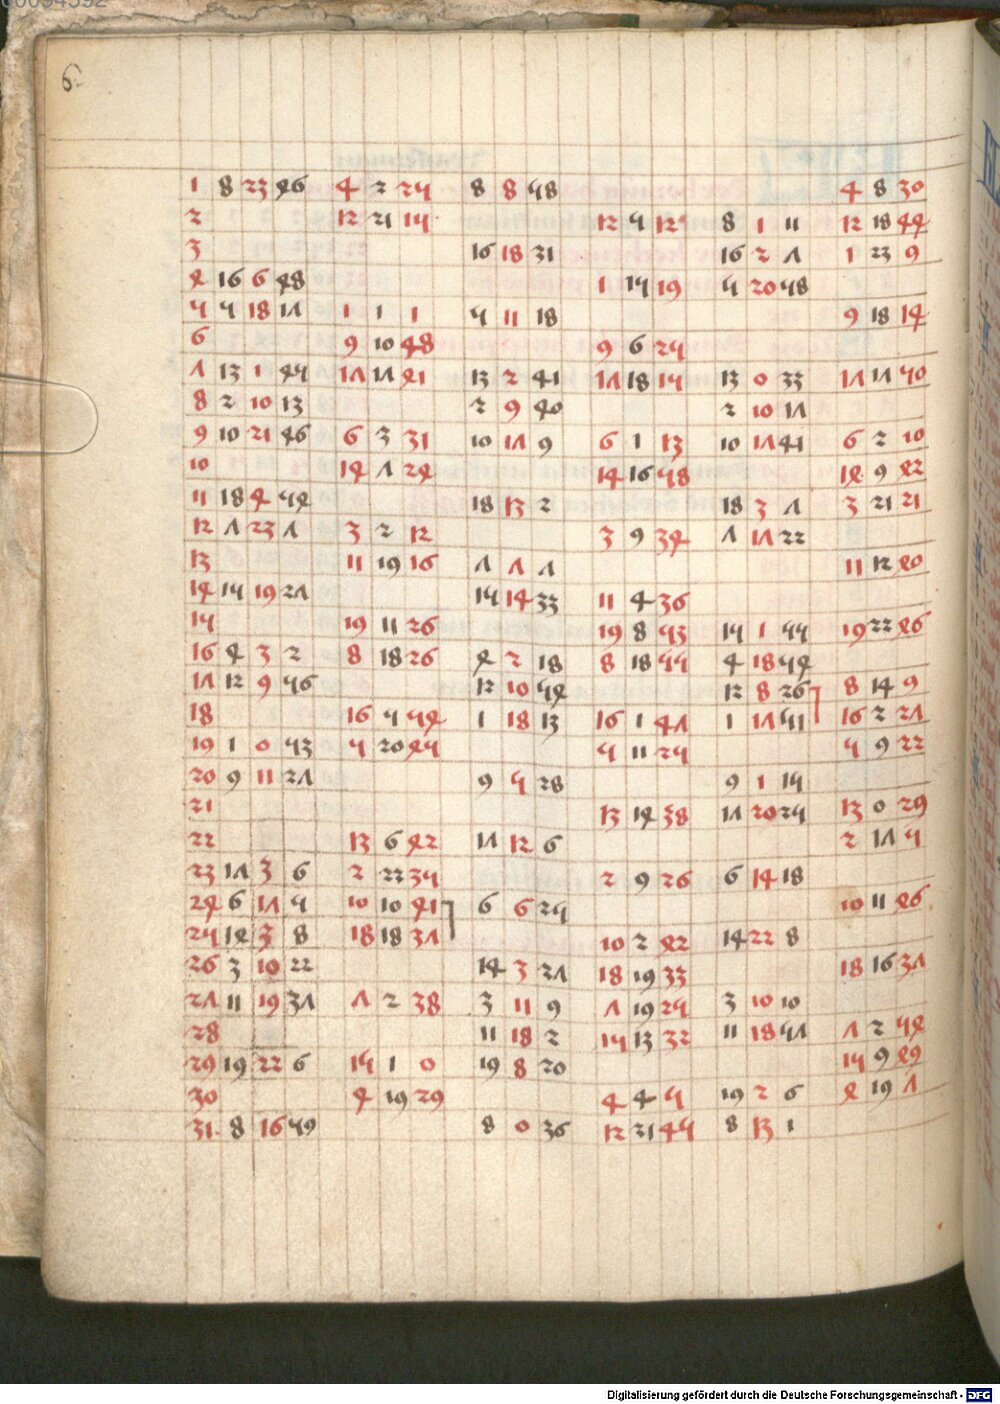 6
1 8 23 46 4 2 25 8 8 58 4 8 30
2 12 21 15 12 5 12 8 1 11 12 18 44
3 16 18 31 16 2 7 1 23 9
4 16 6 48 1 15 19 5 20 58
5 5 18 17 1 1 1 5 11 18 9 18 14
6 9 10 48 9 6 25
7 13 1 55 17 17 41 13 2 51 17 18 15 13 0 33 17 17 50
8 2 10 13 2 9 50 2 10 17
9 10 21 56 6 3 31 10 17 9 6 1 13 10 17 51 6 2 10
10 14 7 24 14 16 58 14 9 42
11 18 4 54 18 13 2 18 3 7 3 21 21
12 7 23 7 3 2 12 3 9 34 7 17 22
13 11 19 16 7 7 7 11 12 40
14 15 19 27 15 14 33 11 4 36
15 19 11 26 19 8 53 15 1 55 19 22 46
16 4 3 2 8 18 26 4 2 18 8 18 55 4 18 54
17 12 9 56 12 10 54 12 8 26 8 15 9
18 16 5 54 1 18 13 16 1 57 1 17 51 16 2 27
19 1 0 53 5 20 45 5 11 25 5 9 22
20 9 11 27 9 5 28 9 1 15
21 13 14 38 17 20 25 13 0 29
22 13 6 42 17 12 6 2 17 5
23 17 3 6 2 22 35 2 9 26 6 14 18
24 6 17 5 10 10 41 6 6 25 10 11 46
25 14 3 8 18 18 37 10 2 42 14 22 8
26 3 10 22 14 3 37 18 19 33 18 16 37
27 11 19 37 7 2 38 3 11 9 7 19 25 3 10 10
28 11 18 2 15 13 32 11 18 57 7 2 54
29 19 22 6 15 1 0 19 8 20 15 9 49
30 4 19 29 4 4 5 19 2 6 4 19 7
31 8 16 59 8 0 36 12 21 55 8 13 1
Digitalisierung gefördert durch die Deutsche Forschungsgemeinschaft - DFG